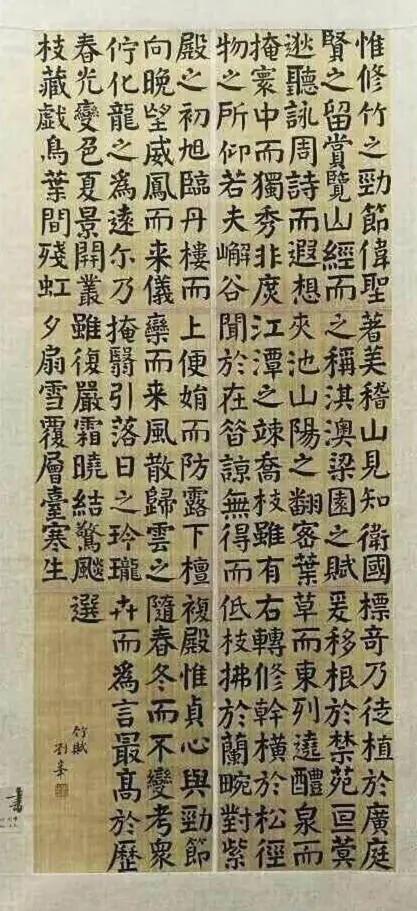 惟修竹之勁節偉聖
賢之留賞覽山經而
逖聽詠周詩而遐想
掩寰中而獨秀非庶
物之所仰若夫嶰谷
著美稽山見知衛國
之稱淇澳梁園之賦
夾池山陽之翻密葉
江潭之竦喬枝雖有
聞於在昝諒無得而
標奇乃徒植於廣庭
爰移根於禁苑亘蓂
草而東列遶醴泉而
右轉修幹橫於松徑
低枝拂於蘭畹對紫
殿之初旭臨丹樓而
向晚望威鳳而来儀
佇化龍之為遠尔乃
春光變色夏景開叢
枝藏戲鳥葉間殘虹
上便娟而防露下檀
欒而来風散歸雲之
掩翳引落日之玲瓏
雖復嚴霜曉結驚飈
夕扇雪覆層臺寒生
複殿惟貞心與勁節
隨春冬而不變考衆
卉而為言最髙於歷
選
竹賦
書